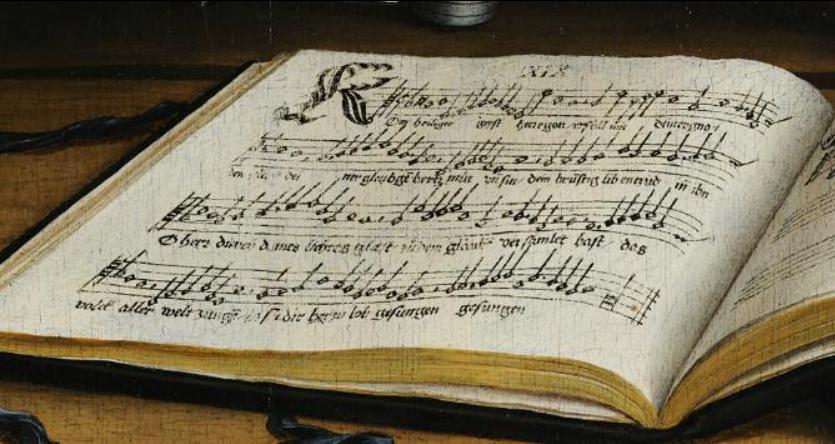 XIX
Kom heiliger geyst herregott erfüll mit deiner gnad
ner gleubgē hertz mut vn sin dein brüstig lib entzud in ihn
O herr durch deines lichtes glast zu dem glaubē versamlet hast das
volck aller welt zunge dir herr zu lob gesungen gesungen